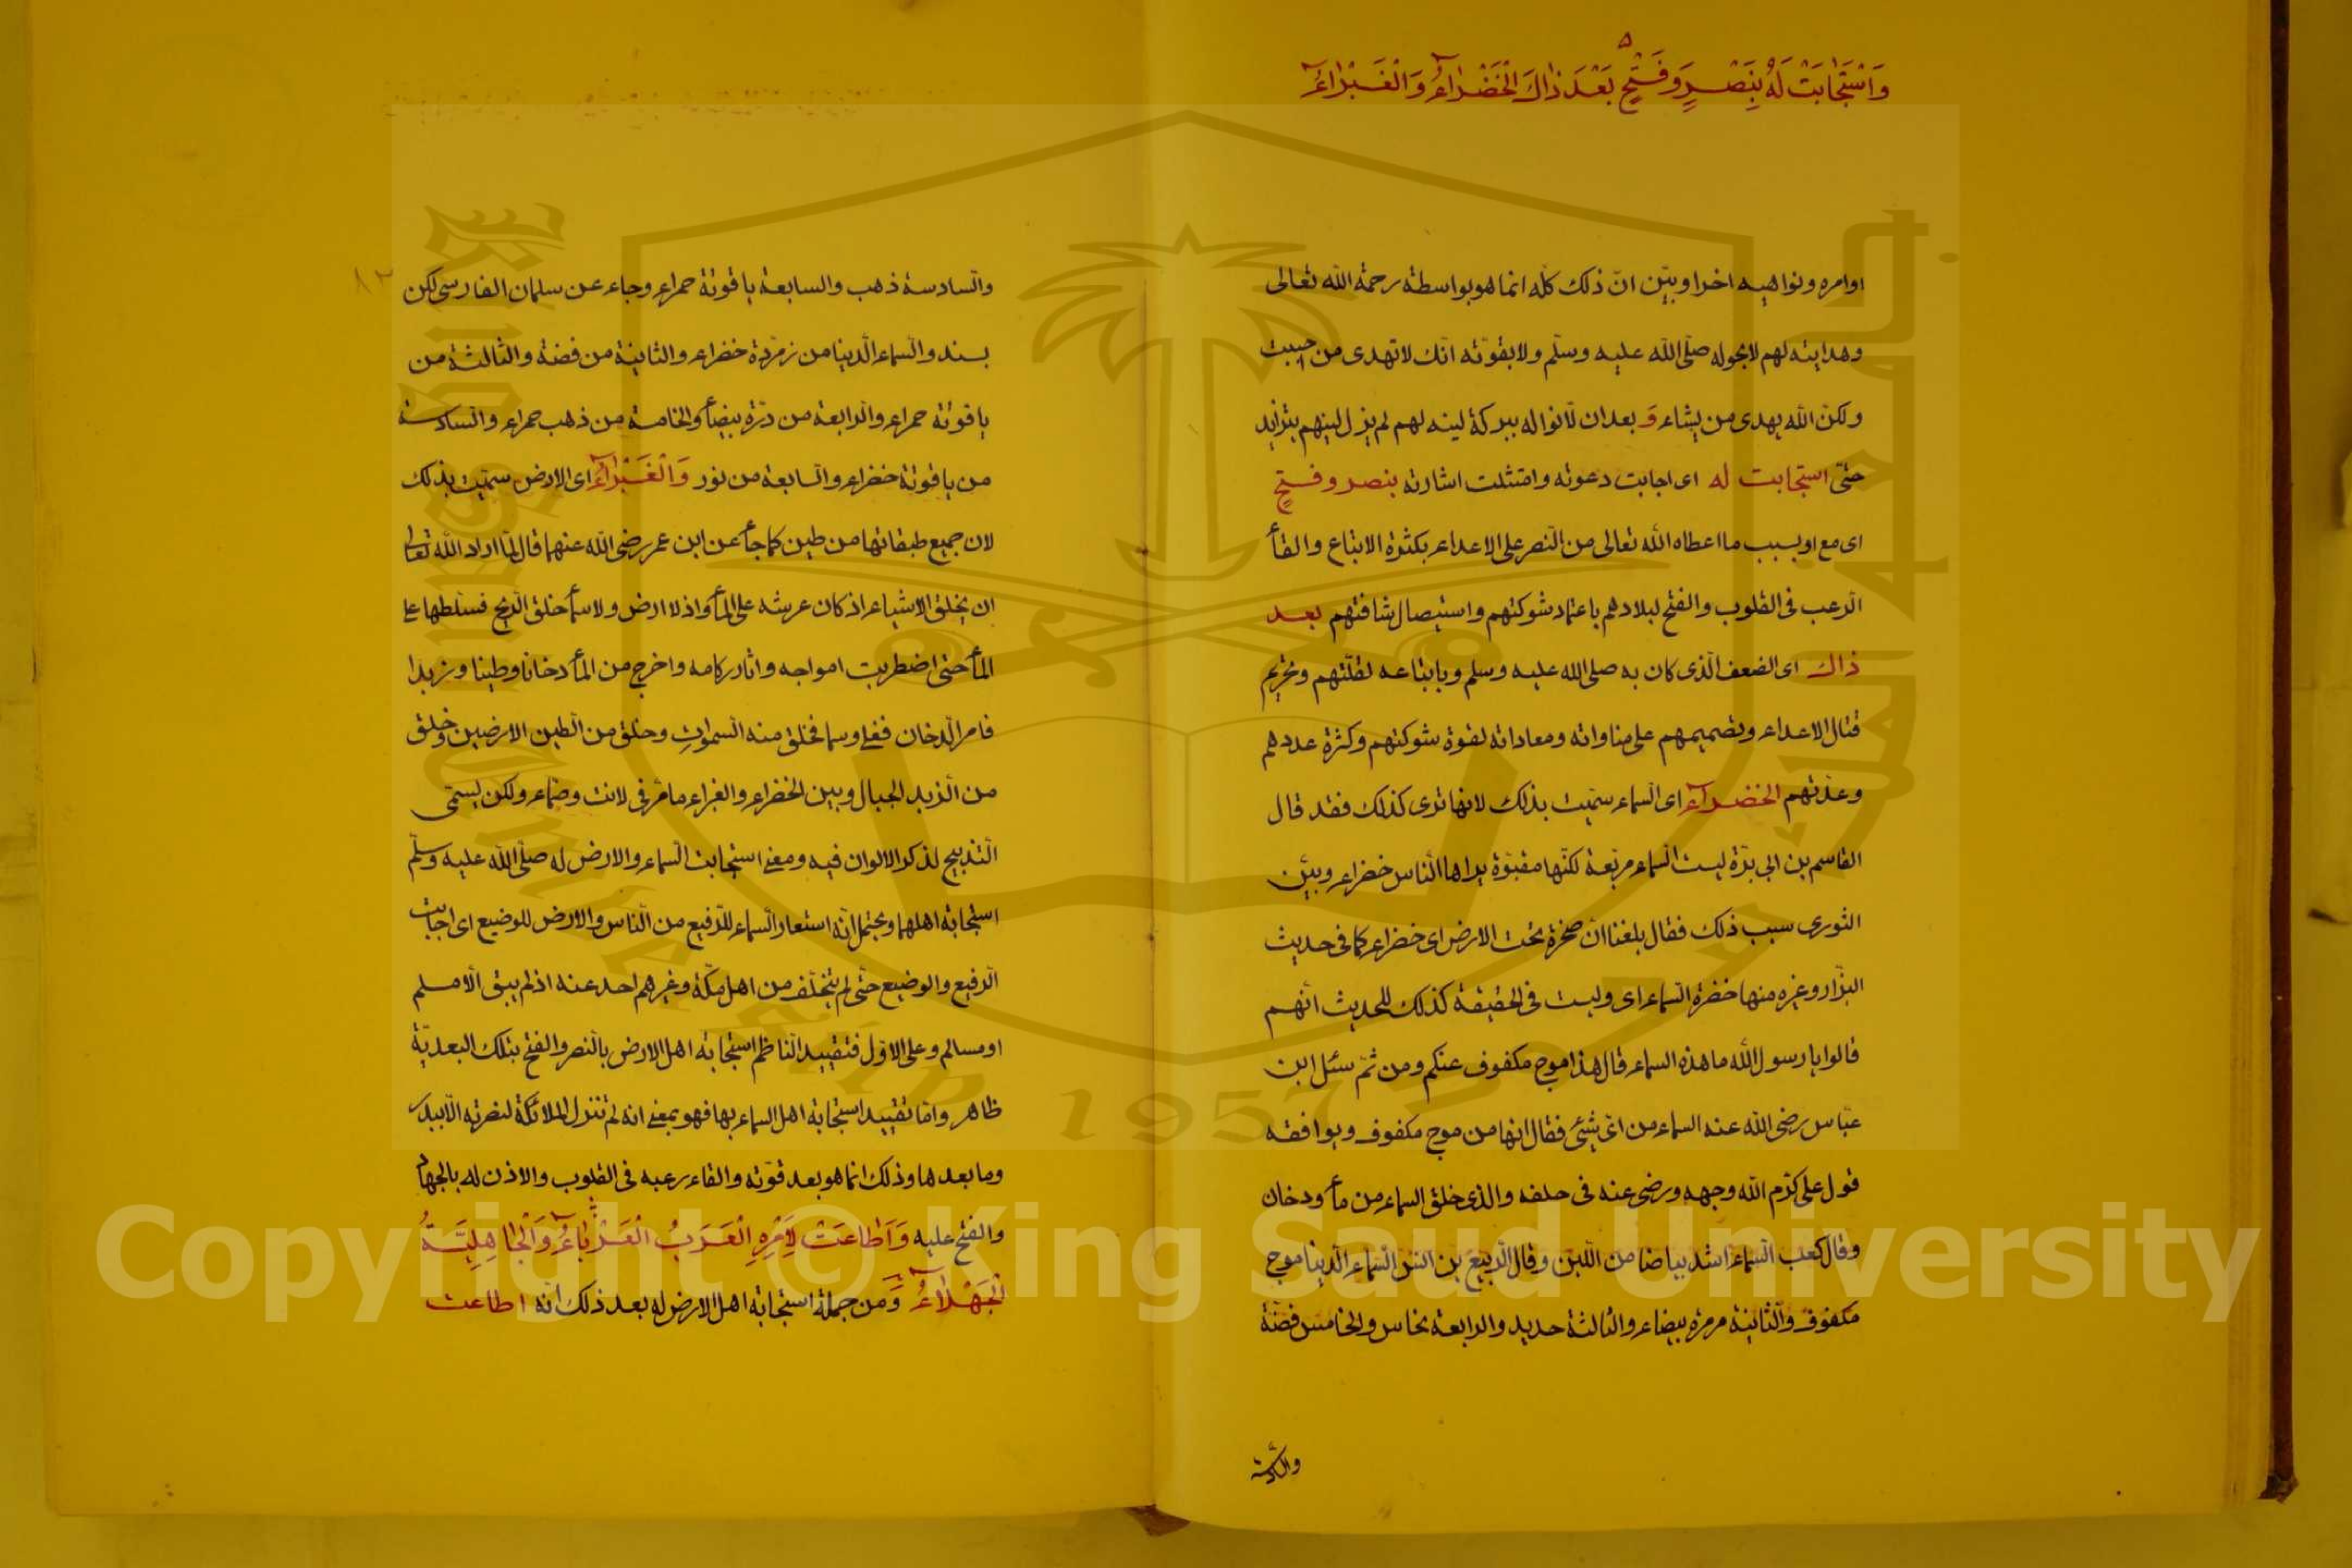 وَاسْتَجَابَتْ لَهُ بِنَصْرٍ وَفَتْحٍ بَعْدَ ذَاكَ الْخَضْرَاءُ وَالْغَبْرَاءُ
اوامره ونواهيه اخرا وبيّن انّ ذلك كلّه انما هو بواسطة رحمة اللّه تعالى
وهدايته لهم لا بحوله صلّى اللّه عليه وسلّم ولا بقوّته انّك لا تهدى من احببت
ولكنّ اللّه يهدى من يشاء وَ بعد ان لانوا له ببركة لينه لهم لم يزل لينهم يتزايد
حتّى استجابت له اى اجابت دعوته وامتثلت اشارته بنصر وفتحٍ
اى مع او بسبب ما اعطاه اللّه تعالى من النّصر على الاعداء بكثرة الاتباع والقأ
الرّعب فى القلوب والفتح لبلادهم باخماد شوكتهم واستيصال شافتهم بعد
ذاك اى الضعف الّذى كان به صلى اللّه عليه وسلم وباتباعه لقلّتهم وتحريم
قتال الاعداء وتصميمهم على مناواته ومعاداته لقوة شوكتهم وكثرة عددهم
وعدّتهم الخضرآء اى السّماء سمّيت بذلك لانها ترى كذلك فقد قال
القاسم بن ابى بزّة ليست السّماء مربّعة لكنّها مقبوّة يراها النّاس خضراء وبيّن
الثورى سبب ذلك فقال بلغنا انّ صخرة تحت الارض اى خضراء كما فى حديث
البزّار وغيره منها خضرة السّماء اى وليست فى الحقيقة كذلك للحديث انّهم
قالوا يا رسول اللّه ما هذه السماء قال هذا موج مكفوف عنكم ومن ثمّ سئل ابن
عبّاس رضى اللّه عنه السماء من اىّ شيئ فقال انها من موج مكفوف ويوافقه
قول على كرّم اللّه وجهه ورضى عنه فى حلفه والذى خلق السماء من مأ ودخان
وقال كعب السّماء اشد بياضا من اللّبن وقال الرّبيع بن انس السّماء الدّنيا موج
مكفوف والثانية مرمرة بيضاء والثالثة حديد والرابعة نحاس والخامس فضّة
والسّادسة
والسّادسة ذهب والسابعة ياقوتة حمراء وجاء عن سلمان الفارسى لكن
بسند والسّماء الّدينا من زمرّدة خضراء والثانية من فضة والثالثة من
ياقوتة حمراء والرّابعة من درّة بيضأ والخامسة من ذهب حمراء والسّادسة
من ياقوتة خضراء والسّابعة من نور وَالْغَبْرَاءُ اى الارض سمّيت بذلك
لان جميع طبقاتها من طين كما جأ عن ابن عمر رضى اللّه عنهما قال لمّا اراد اللّه تعالى
ان يخلق الاشياء اذ كان عرشه على المأ واذ لا ارض ولا سمأ خلق الرّيح فسلّطها على
المأ حتى اضطربت امواجه واثار ركامه واخرج من المأ دخانا وطينا وزبدا
فامر الّدخان فعلى وسما فخلق منه السّموات وخلق من الطين الارضين وخلق
من الزّبد الجبال وبين الخضراء والغبراء ما مرّ فى لانت وصمّاء ولكن يسمّى
التّدبيج لذكر الالوان فيه ومعنى استجابت السّماء والارض له صلّى اللّه عليه وسلّم
استجابة اهلهما ويحتمل انّه استعار السّماء للرّفيع من النّاس والارض للوضيع اى اجابت
الرّفيع والوضيع حتّى لم يتخلّف من اهل مكّة وغيرهم احد عنه اذ لم يبق الّا مسلم
او مسالم وعلى الاوّل فتقييد النّاظم استجابة اهل الارض بالنّصر والفتح بتلك البعديّة
ظاهر وامّا تقييد استجابة اهل السماء بها فهو بمعنى انه لم تنزل الملائكة لنصرته الّا ببدر
وما بعدها وذلك انما هو بعد قوّته والقاء رعبه فى القلوب والاذن له بالجهاد
والفتح عليه وَاَطَاعَتْ لِاَمْرِهِ الْعَرَبُ الْعَرْبَاءُ وَالْجَاهِلِيَّةُ
الْجَهْلَاءُ وَ من جملة استجابة اهل الارض له بعد ذلك انّه اطاعت